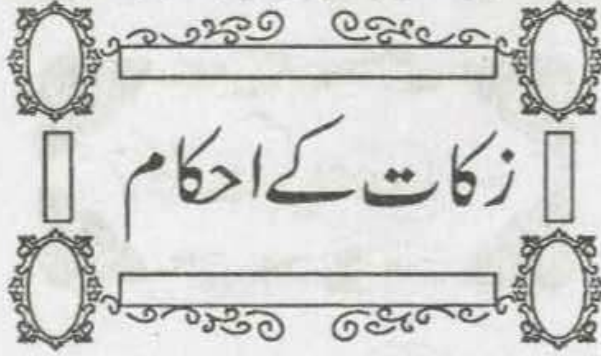 زکات کے احکام